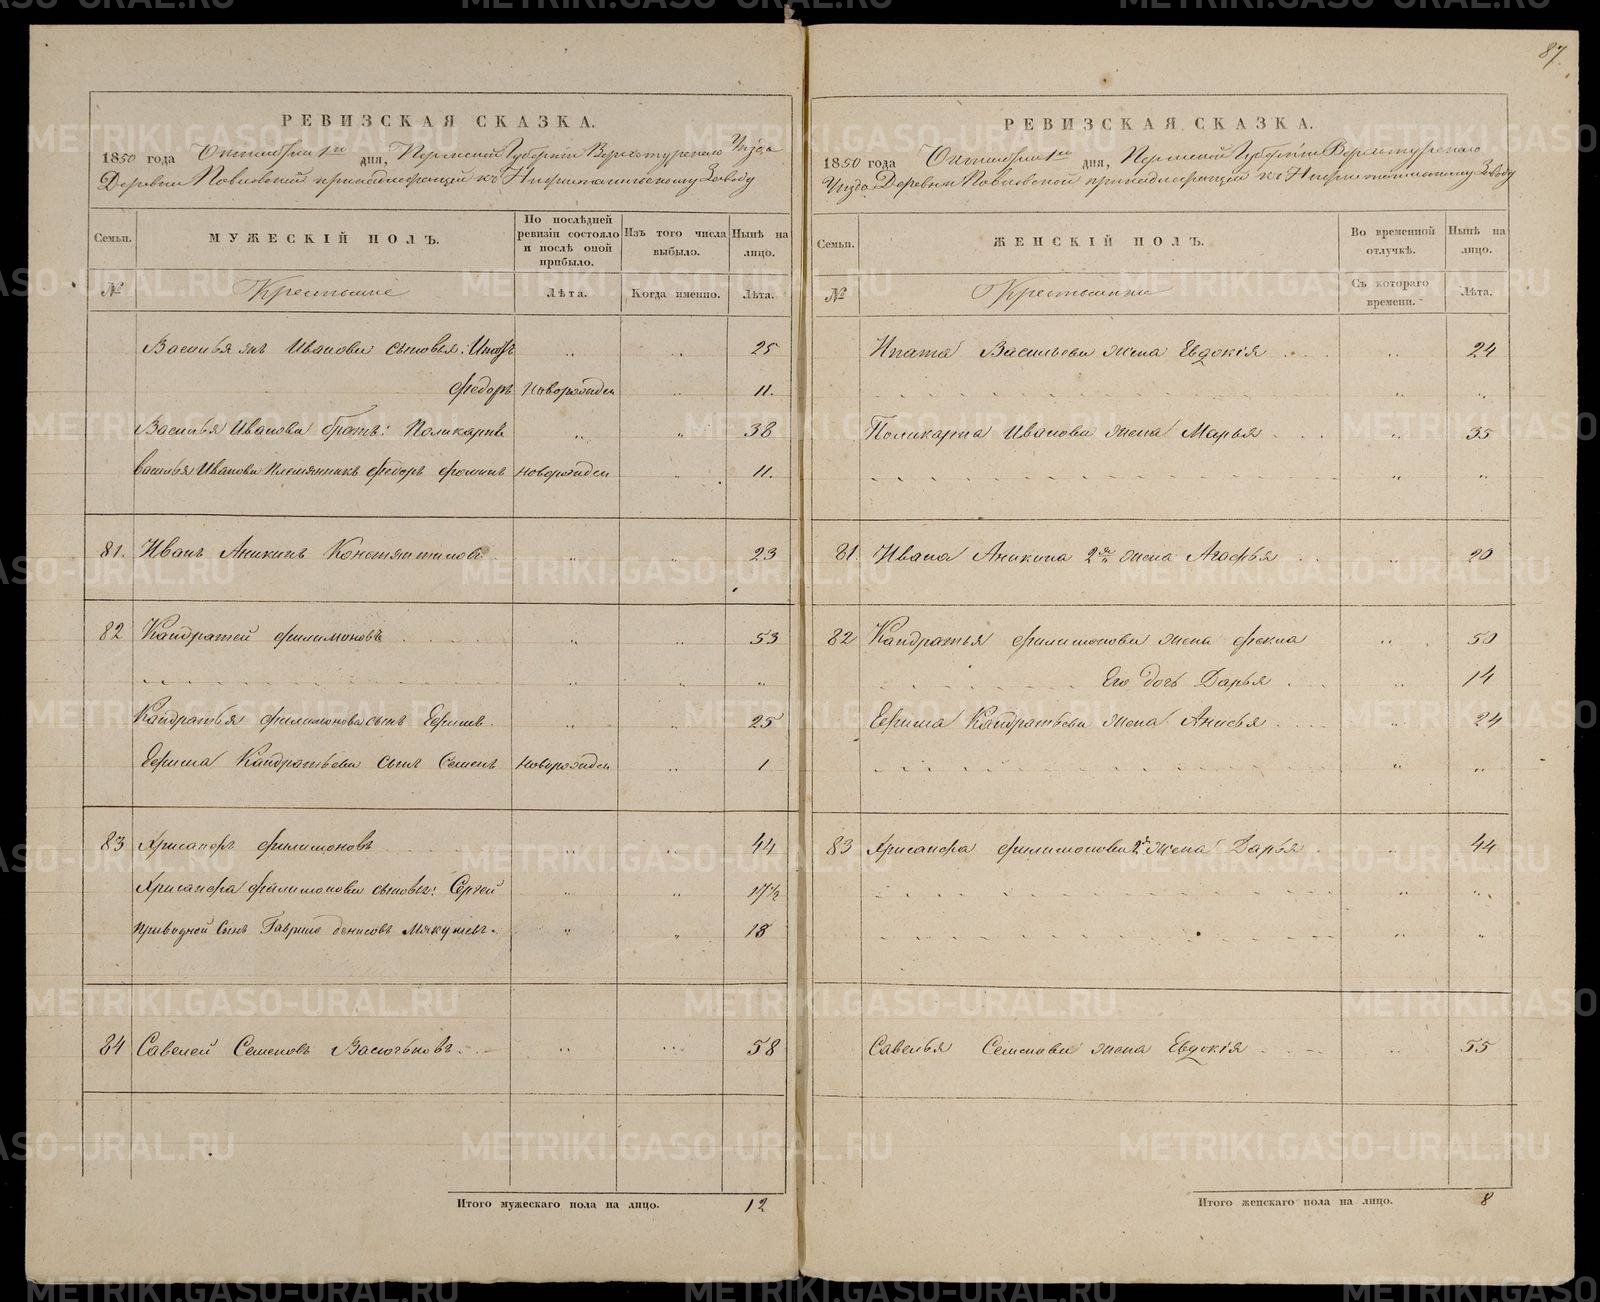 87
РЕВИЗСКАЯ СКАЗКА.
1850 года Октября 1го дня, Пермской Губернiи Верхотурскаго Уѣзда
Деревни принадлежащей къ Нижнетагильскому Заводу
Семьи.
МУЖЕСКIЙ ПОЛЪ.
По послѣдней ревизiи состояло и послѣ оной прибыло.
Изъ того числа выбыло.
Нынѣ на лицо.
№
Крестьяне
Лѣта.
Когда именно.
Лѣта.
Василья Иванова сыновья: Ипатъ 25
Федоръ Новорожден 11.
Василья Иванова братъ: Поликарпъ 38
Василья Иванова племянникъ Федоръ Фоминъ новорожден 11.
81. Иванъ Аникинъ Константиновъ 23
82 Кандратей Филимоновъ 53
Кандратья Филимонова сынъ Ефимъ 25
Ефима Кандратьева сынъ Семенъ Новорожден 1
83 Хрисанфъ Филимоновъ 44
Хрисанфа Филимонова сыновья: Сергей 17½
приводной сынъ Гаврило Денисовъ Мякушев 18
84 Савелей Семеновъ 58
Итого мужескаго пола на лицо. 12
РЕВИЗСКАЯ СКАЗКА.
1850 года Октября 1го дня, Пермской Губернiи Верхотурскаго
Уѣзда Деревни принадлежащей къ Нижнетагильскому Заводу
Семьи.
ЖЕНСКIЙ ПОЛЪ.
Во временной отлучкѣ.
Нынѣ на лицо.
№
Крестьянки
Съ котораго времени.
Лѣта.
Ипата Васильева жена Евдокiя 24
Поликарпа Иванова жена Марья 35
81. Ивана Аникина 2я жена Агафья 20
82 Кандратья Филимонова жена Фекла 50
Его дочь Дарья 14
Ефима Кандратьева жена Анисья 24
83 Хрисанфа Филимонова 2я жена Дарья 44
Савелья Семенова жена Евдокiя 55
Итого женскаго пола на лицо. 8
METRIKI.GASO-URAL.RU